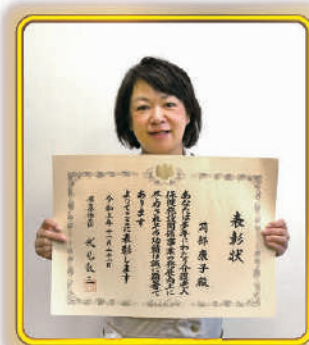 表彰状
岡部康子殿
あなたは多年にわたり介護老人
保健施設関係事業の発展向上に
尽力されその功績は誠に顕著で
あります
よってここに表彰します
令和五年十一月二十一日
厚生労働大臣 武見敬三